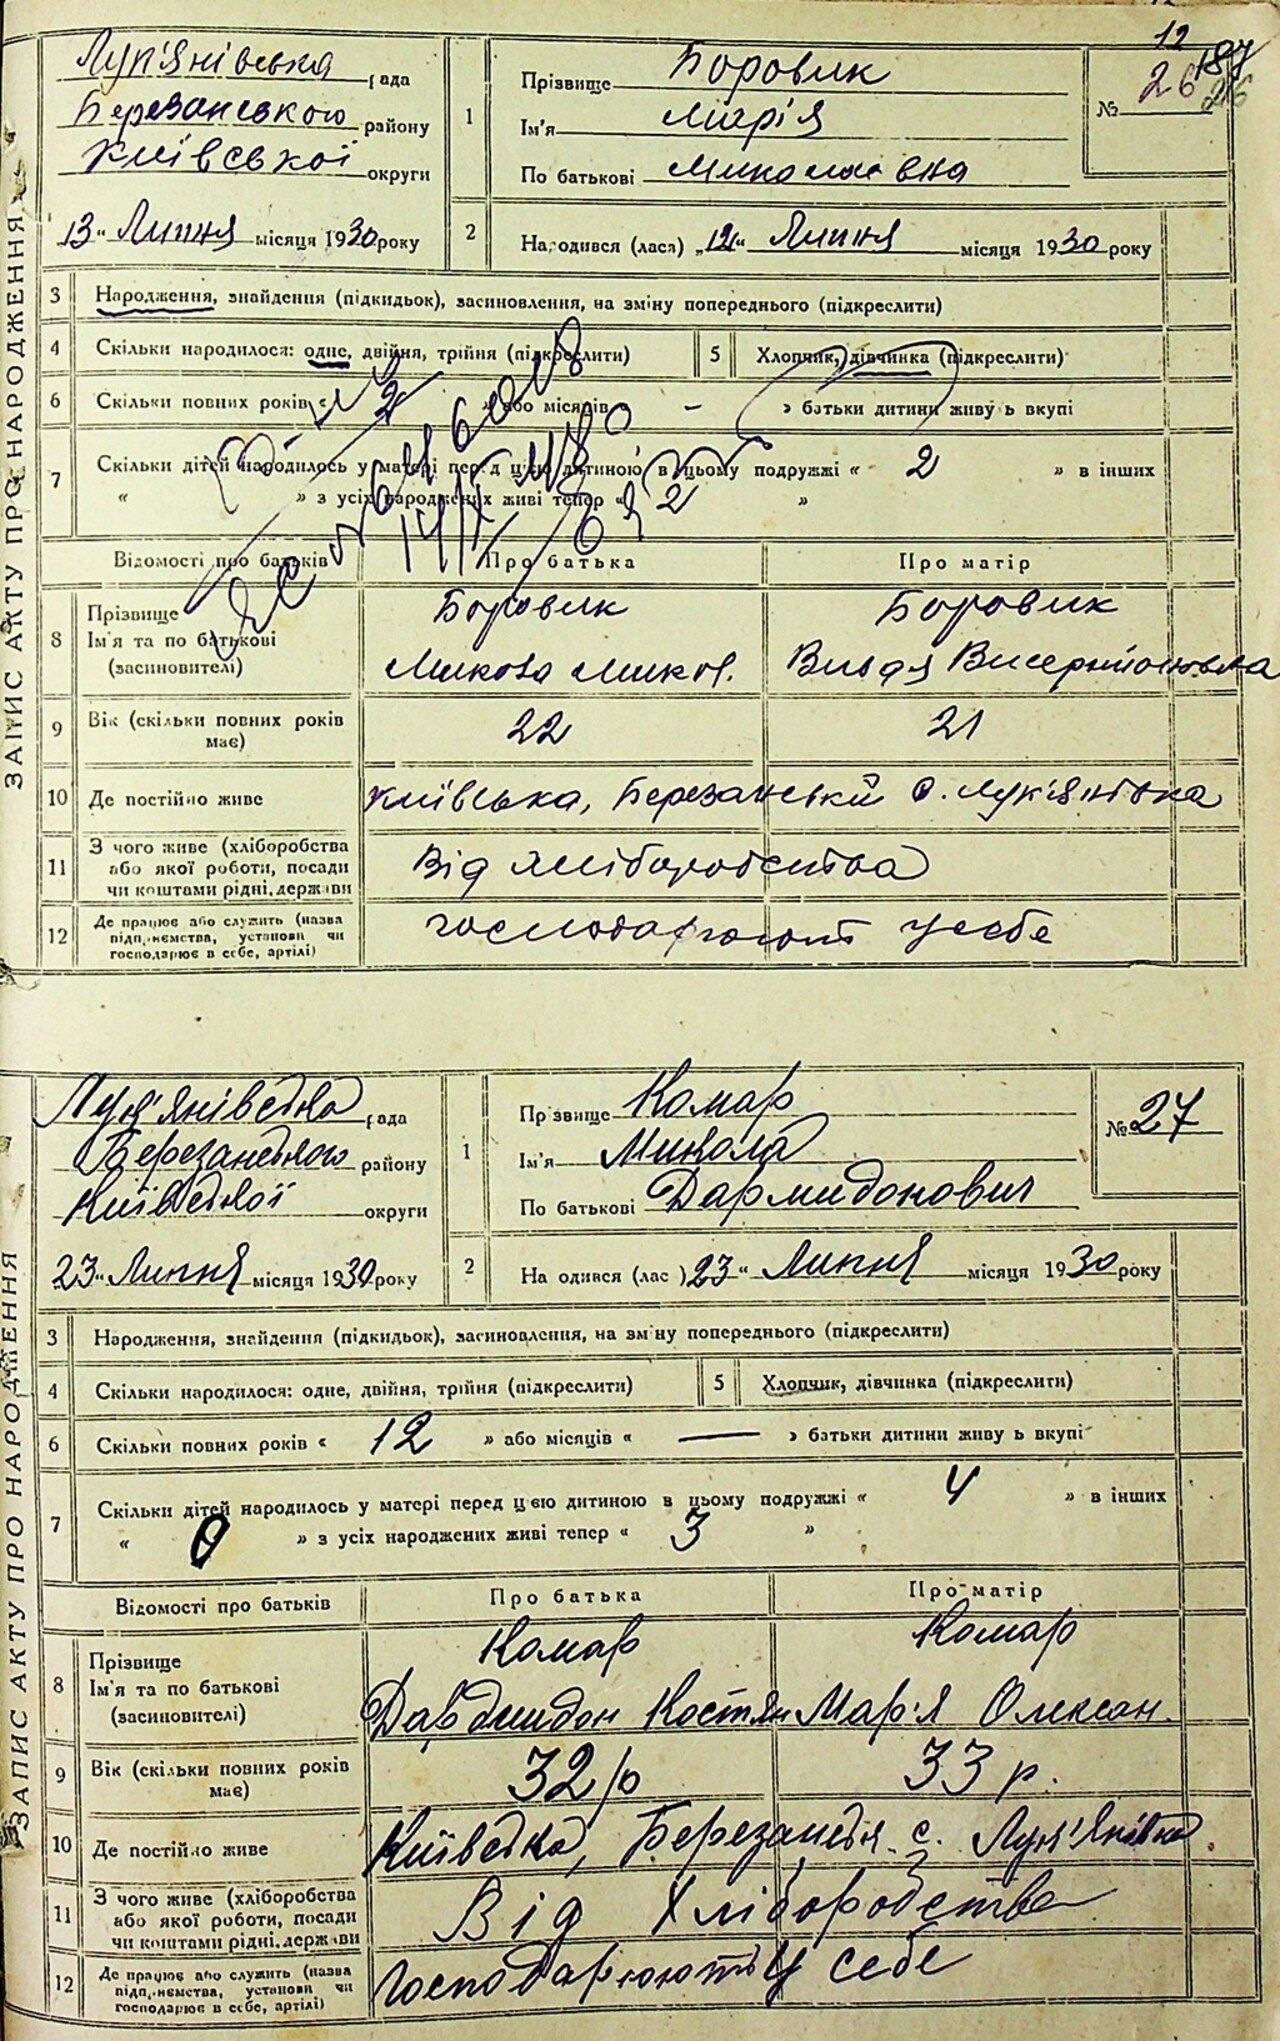 12
187
26
26
ЗАПИС АКТУ ПРО НАРОДЖЕННЯ
Лук'янівська рада
Березанського району
Київської округи
13 " Липня місяця 1930 року
1
Прізвище Боровик
Ім'я Марія
По батькові Миколаєвна
№
2
Народився (лася) „12" Липня місяця 1930 року
3 Народження, знайдення (підкидьок), засиновлення, на зміну попереднього (підкреслити)
4 Скільки народилося: одне, двійня, трійня (підкреслити) 5 Хлопчик, дівчинка (підкреслити)
6 Скільки повних років « 2 » або місяців - » батьки дитини живуть вкупі
7 Скільки дітей народилось у матері перед цією дитиною в цьому подружжі « 2 » в інших
« » з усіх народжених живі тепер « 2 »
Відомості про батьків Про батька Про матір
8 Прізвище Боровик Боровик
Ім'я та по батькові
(засиновителі) Микола Микол.
9 Вік (скільки повних років має) 22 21
10 Де постійно живе Київська, Березанський с. Лук'янівка
11 З чого живе (хліборобства
або якої роботи, посади
чи коштами рідні, держави
Від хліборобства
12 Де працює або служить (назва
підприємства, установи чи
господарює в себе, артілі)
господарюють у себе
ЗАПИС АКТУ ПРО НАРОДЖЕННЯ
Лук'янівська рада
Березанського району
Київської округи
23 " Липня місяця 1930 року
1
Прізвище Комар
Ім'я Микола
По батькові Дармидонович
№ 27
2
Народився (лас ) 23 " Липня місяця 1930 року
3 Народження, знайдення (підкидьок), засиновлення, на зміну попереднього (підкреслити)
4 Скільки народилося: одне, двійня, трійня (підкреслити) 5 Хлопчик, дівчинка (підкреслити)
6 Скільки повних років « 12 » або місяців « — » батьки дитини живуть вкупі
7 Скільки дітей народилось у матері перед цією дитиною в цьому подружжі « 4 » в інших
« 0 » з усіх народжених живі тепер « 3 »
Відомості про батьків Про батька Про матір
8 Прізвище Комар Комар
Ім'я та по батькові
(засиновителі) Костян Мар'я Олексан.
9 Вік (скільки повних років має) 32 р 33 р.
10 Де постійно живе Київська, Березанськ. с. Лук'янівка
11 З чого живе (хліборобства
або якої роботи, посади
чи коштами рідні, держави
Від Хліборобства
12 Де працює або служить (назва
підприємства, установи чи
господарює в себе, артілі)
Господарюють У себе